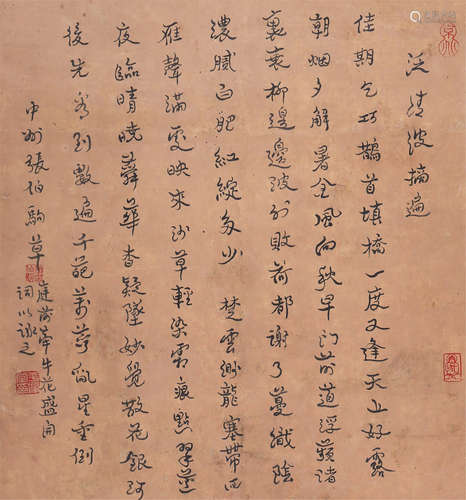 泛清波摘遍
佳期乞巧鵲首填橋一度又逢天上好露
朝烟夕解暑金風向秋早門前道浮蘋渚
裏衰柳邊邊波外敗荷都謝了蔓織陰
濃膩白肥紅綻多少 楚雲渺龍塞帶西
雁聲滿映來沙草輕染霜痕點翠
夜臨晴曉蕣華杳疑墜妙覺散花銀河
後先看到數遍千葩萬萼亂星垂倒
中州張伯駒草
庭前牽牛花盛開
詞以詠之